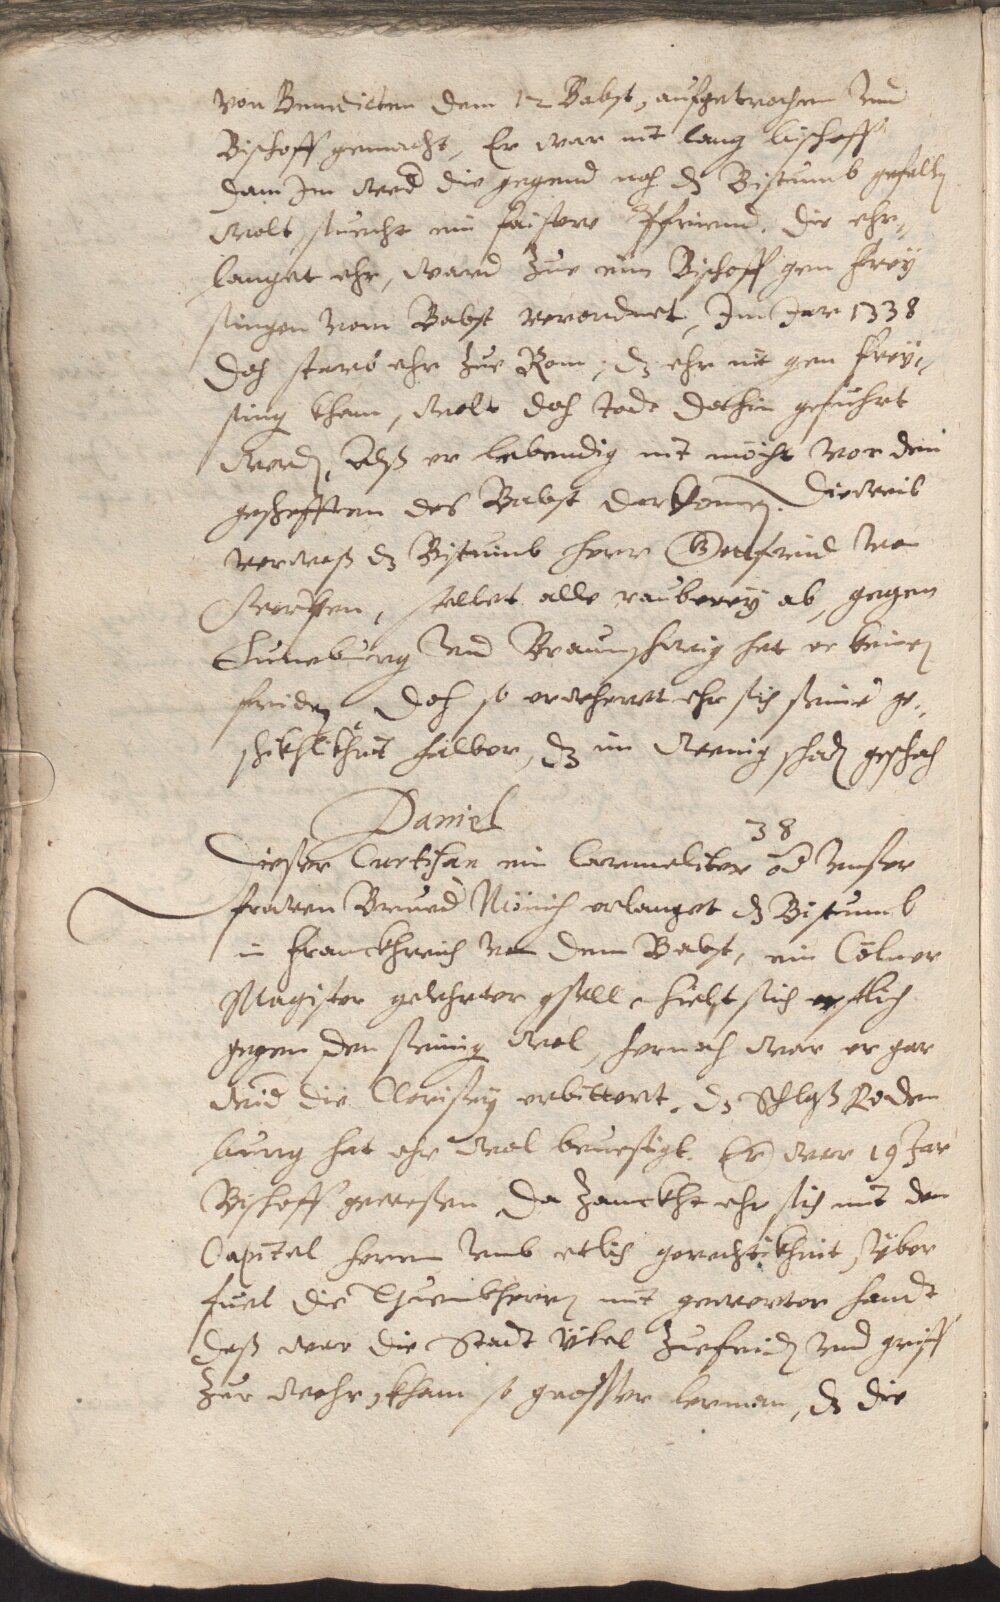 von Benedicten dem 12 Babst, aufgetrochen vnd
Bischoff gemacht, Er war nit lang bischoff
dann Im wed die gegend noch dz Bistumb gefalln
wolt, suecht ein faistere Pfruend. Die ehr„
langet ehr, ward zue eim Bischoff gen Frey
singen vom Babst verordnet, Im Jar 1338
doch starb ehr zue Rom, dz ehr nie gen Frey„
sing kham, wolt doch todt dohin gefuhrt
werdn, Alß er lebendig nit mocht vor den
geschefften des Babst darkomen. Dieweil
verwaß dz Bistumb herr Gottfrid von
, stellet alle rauberey ab, gegen
Luneburg vnd Braunschwig hat er keinen
friden. Doch so erwheret ehr sich seiner ge„
schikhlikhait halber, dz im wenig schadn geschach
Daniel
38
Dieser Curtisan ein Carmeliter od vnser
frawen Brued Münich erlanget dz Bistumb
in Franckhreich von dem Babst, ein Cölner
Magister gelehrter gsell, hielt sich erstlich
gegen den seinig wol, hernach war er gar
wid die Clerisey erbittert. dz Schlos Roden
burg hat ehr wol beuestigt. Er war 19 Jar
Bischoff gewesen da zanckht ehr sich mit den
Capitel herrn vmb etlich gerechtikhait, vber
fuel die Thumbherrn mit gewerter handt
daß war die Stadt vbel zuefridn vnd griff
zur wehr, kham so grosser lerman, dz die